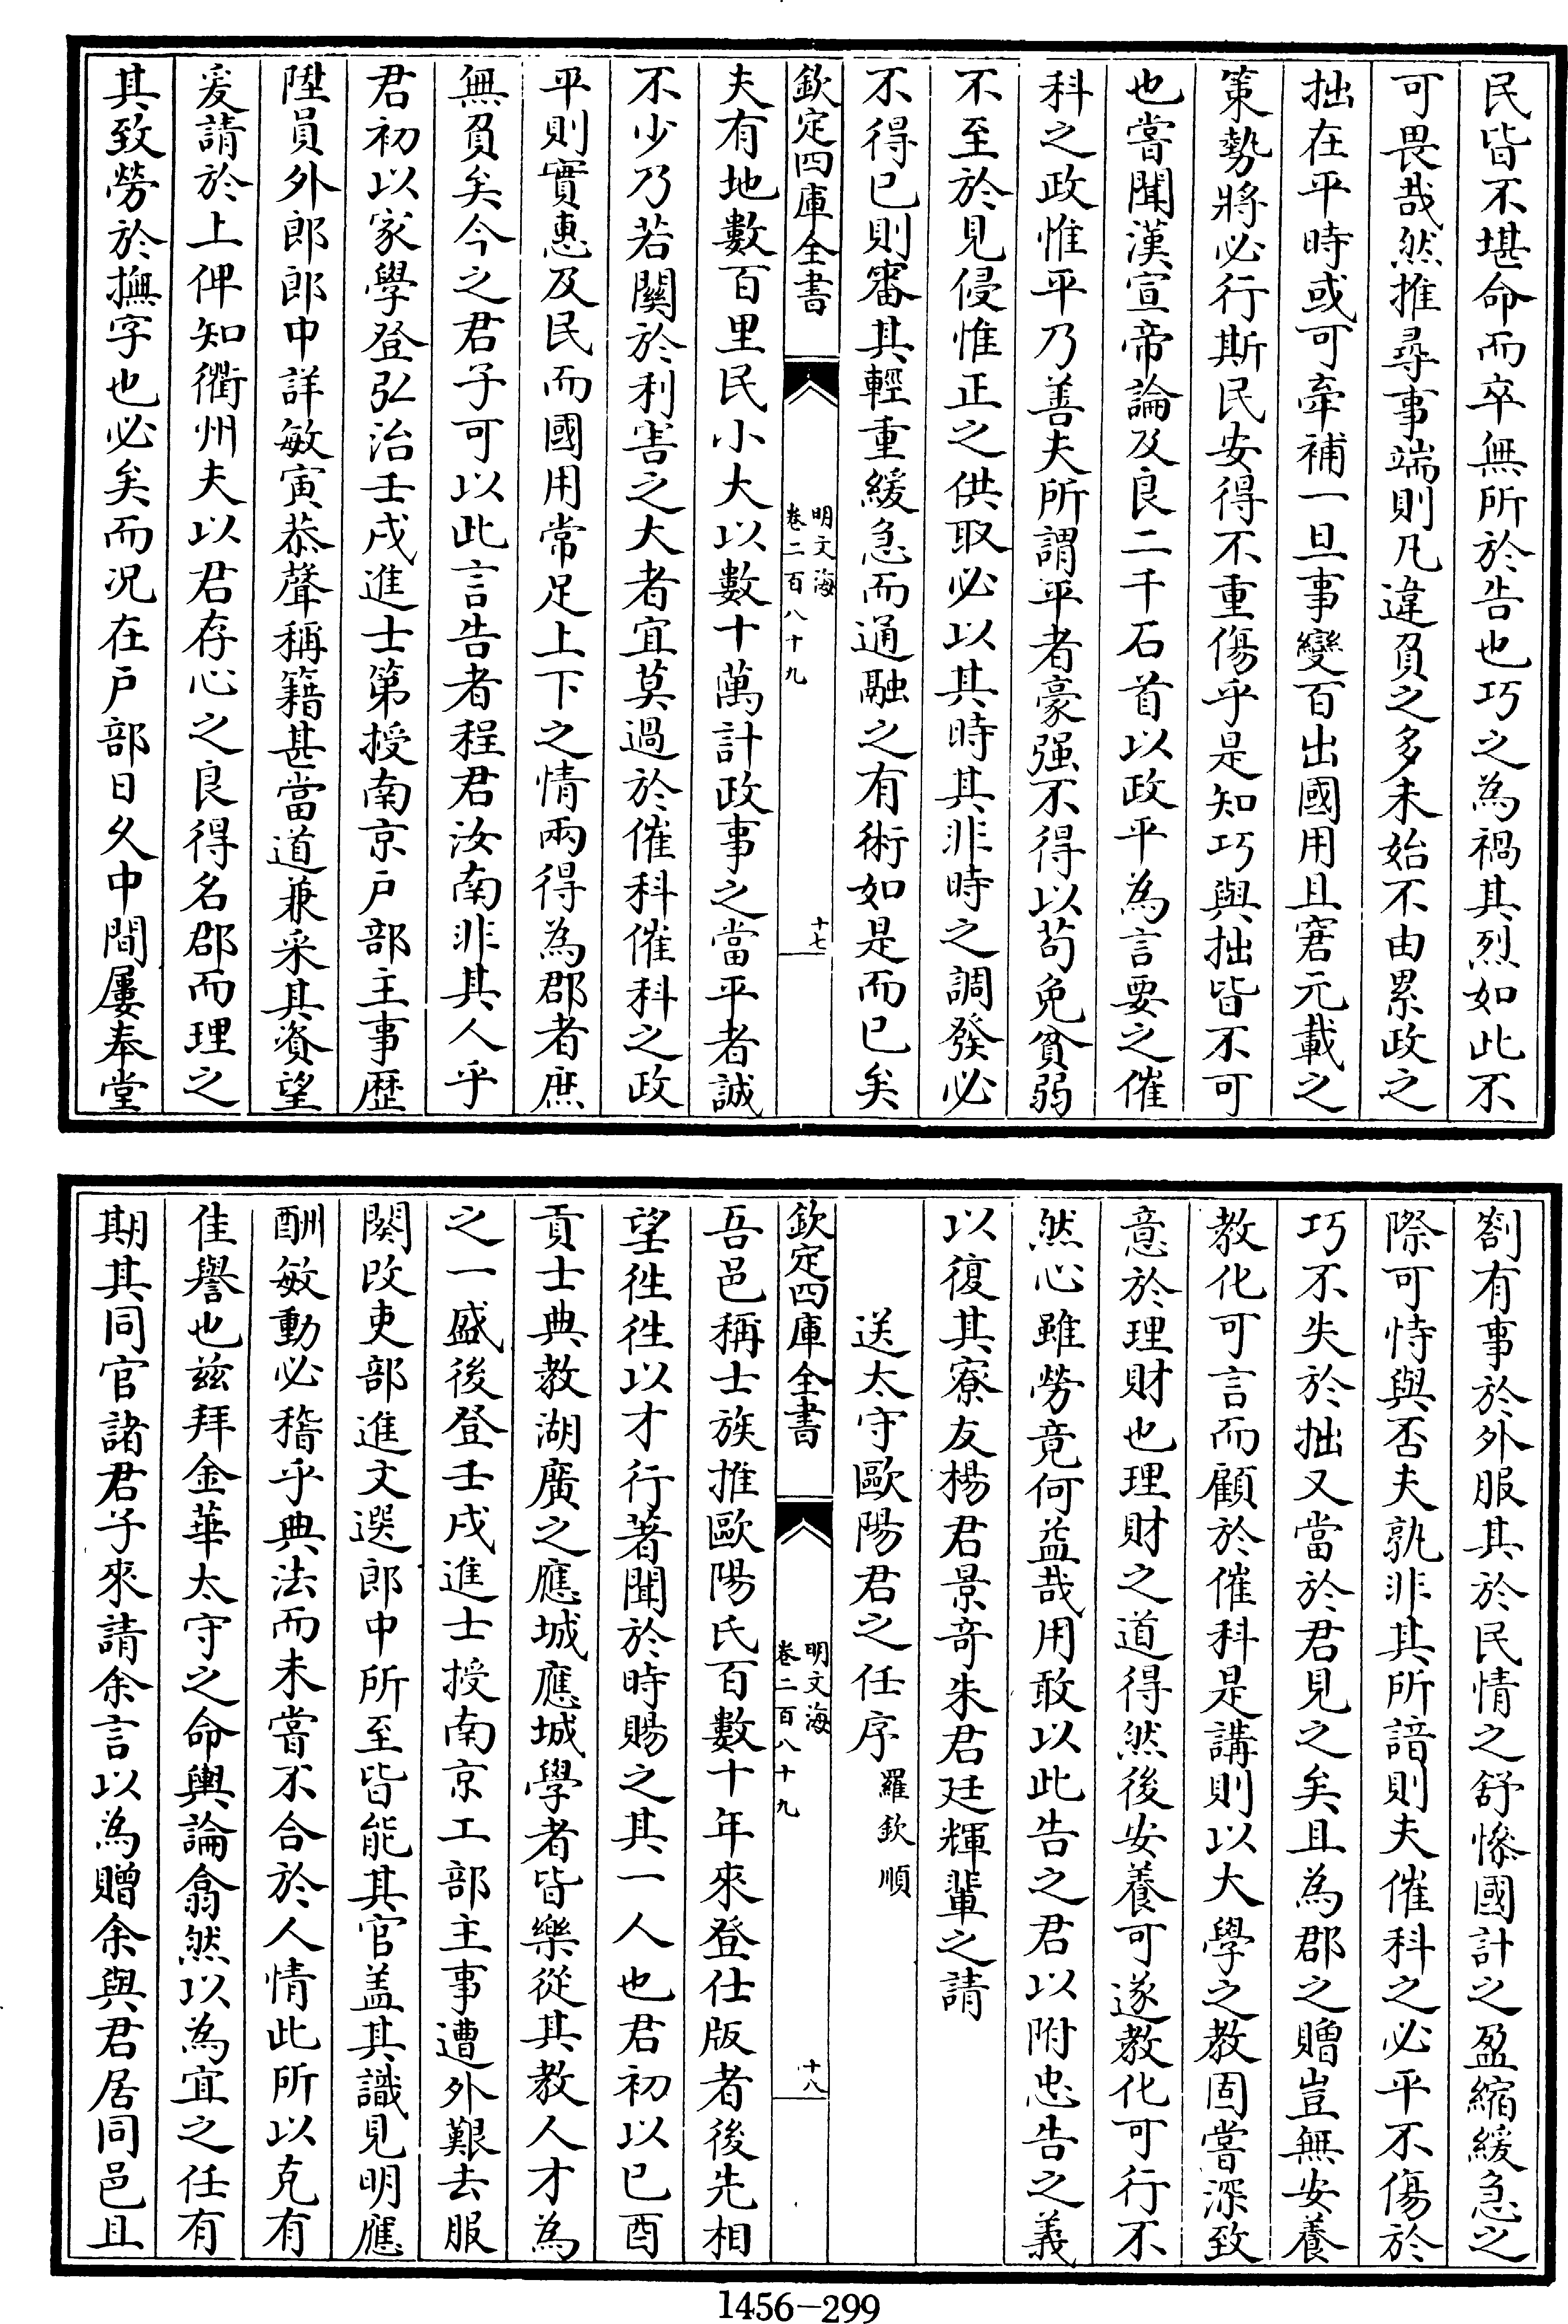 民皆不堪命而卒無所於告也巧之為禍其烈如此不
可畏哉然推尋事端則凡違負之多未始不由累政之
拙在平時或可牽補一旦事變百出國用且窘元載之
策勢將必行斯民安得不重傷乎是知巧與拙皆不可
也嘗聞漢宣帝論及良二千石首以政平為言要之催
科之政惟平乃善夫所謂平者豪强不得以苟免貧弱
不至於見侵惟正之供取必以其時其非時之調發必
不得已則審其輕重緩急而通融之有術如是而已矣
欽定四庫全書
明文海
卷二百八十九
十七
夫有地數百里民小大以數十萬計政事之當平者誠
不少乃若關於利害之大者宜莫過於催科催科之政
平則實惠及民而國用常足上下之情兩得為郡者庶
無負矣今之君子可以此言告者程君汝南非其人乎
君初以家學登弘治壬戌進士第授南京户部主事歴
陞員外郎郎中詳敏寅恭聲稱籍甚當道兼采其資望
爰請於上俾知衢州夫以君存心之良得名郡而理之
其致勞於撫字也必矣而況在户部日久中間屢奉堂
劄有事於外服其於民情之舒慘國計之盈縮緩急之
際可恃與否夫孰非其所諳則夫催科之必平不傷於
巧不失於拙又當於君見之矣且為郡之贈豈無安養
教化可言而顧於催科是講則以大學之教固嘗深致
意於理財也理財之道得然後安養可遂教化可行不
然心雖勞竟何益哉用敢以此告之君以附忠告之義
以復其寮友楊君景奇朱君廷輝輩之請
送太守歐陽君之任序 羅欽順
欽定四庫全書
明文海
卷二百八十九
十八
吾邑稱士族推歐陽氏百數十年來登仕版者後先相
望徃徃以才行著聞於時賜之其一人也君初以已酉
貢士典教湖廣之應城應城學者皆樂從其教人才為
之一盛後登壬戌進士授南京工部主事遭外艱去服
闋改吏部進文選郎中所至皆能其官盖其識見明應
酬敏動必稽乎典法而未嘗不合於人情此所以克有
佳譽也兹拜金華太守之命輿論翕然以為宜之任有
期其同官諸君子來請余言以為贈余與君居同邑且
1456-299